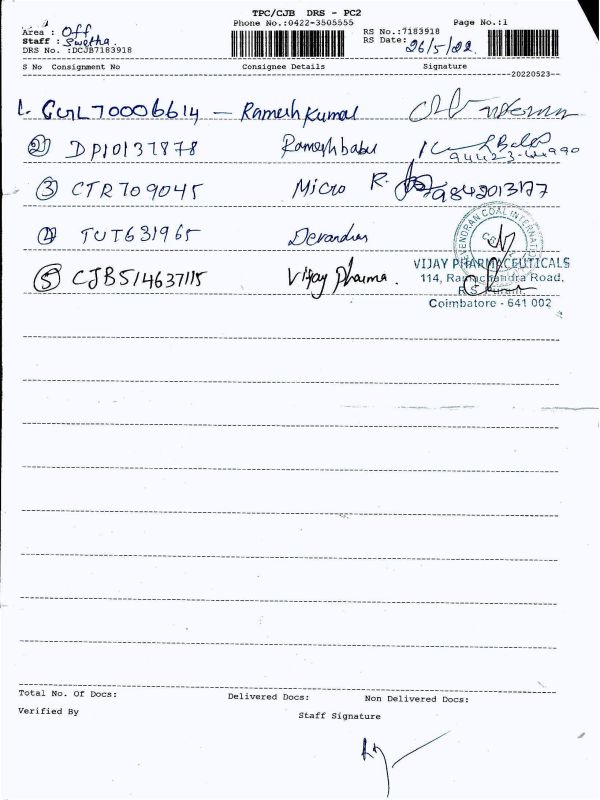 TPC/CJB DRS - PC2
Phone No.:0422-3505555
Page No.:1
Area : Off
Staff : Swetha.
DRS No. :DCJB7183918
RS No.:7183918
RS Date: 26/5/22.
S No Consignment No Consignee Details Signature
20220523
1. GGL70006614 - Ramesh Kumar
2) DP10137878 Rameshbabu
3) CTR709045 Micro R. 9842013177
4) TUT631965 Devandran
5) CJB514637115 Vijay Pharma.
VENDRAN COAL INTERNATIO
VIJAY PHARMACEUTICALS
114, Ramachandra Road,
R.S. Puram,
Coimbatore - 641 002
Total No. Of Docs: Delivered Docs: Non Delivered Docs:
Verified By Staff Signature